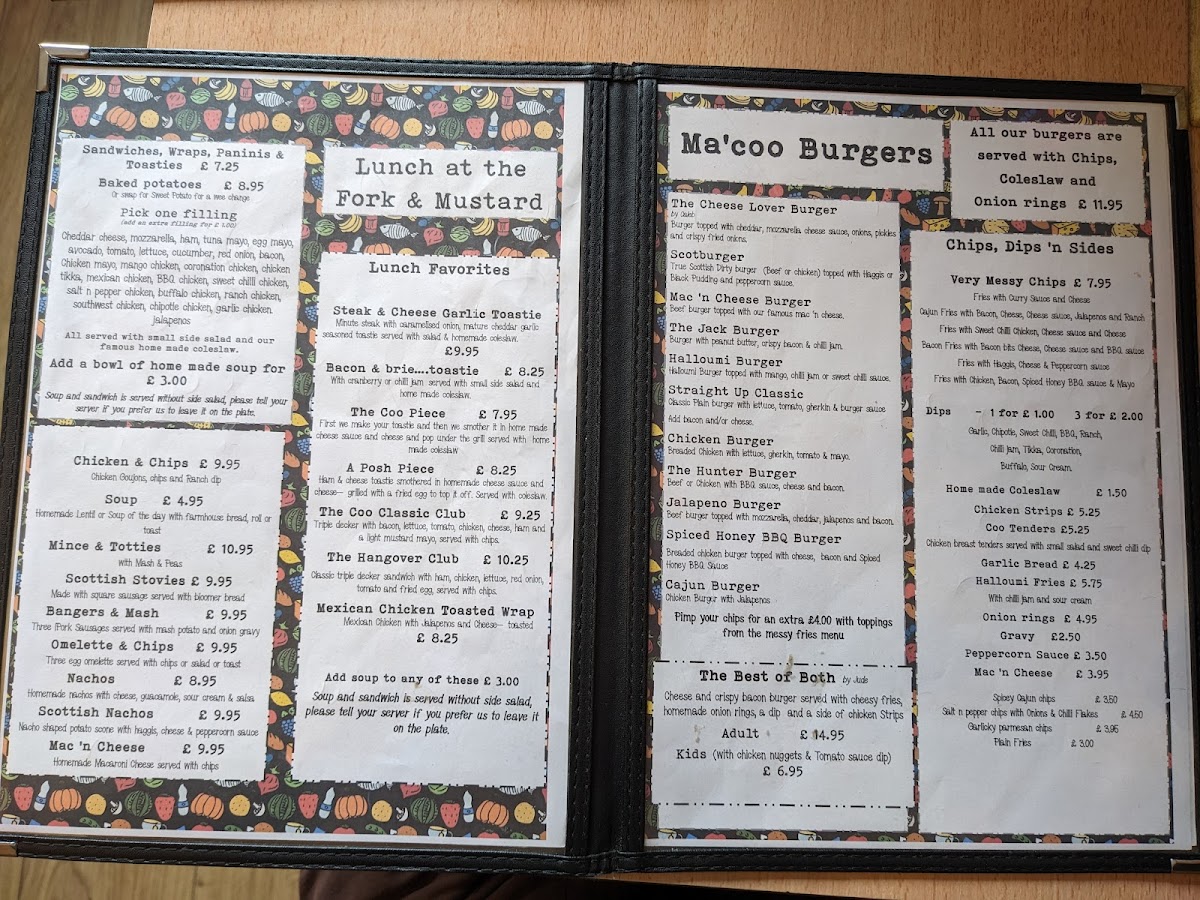 Sandwiches, Wraps, Paninis &
Toasties £ 7.25
Baked potatoes £ 8.95
Or swap for Sweet Potato for a wee change
Pick one filling
(add an extra filling for £ 1.00)
Cheddar cheese, mozzarella, ham, tuna mayo, egg mayo,
avocado, tomato, lettuce, cucumber, red onion, bacon,
Chicken mayo, mango chicken, coronation chicken, chicken
tikka, mexican chicken, BBQ chicken, sweet chilli chicken,
salt n pepper chicken, buffalo chicken, ranch chicken,
southwest chicken, chipotle chicken, garlic chicken.
jalapenos
All served with small side salad and our
famous home made coleslaw.
Add a bowl of home made soup for
£ 3.00
Soup and sandwich is served without side salad, please tell your
server if you prefer us to leave it on the plate.
Chicken & Chips £ 9.95
Chicken Goujons, chips and Ranch dip
Soup £ 4.95
Homemade Lentil or Soup of the day with farmhouse bread, roll or
toast
Mince & Totties £ 10.95
with Mash & Peas
Scottish Stovies £ 9.95
Made with square sausage served with bloomer bread
Bangers & Mash £ 9.95
Three (Pork Sausages served with mash potato and onion gravy
Omelette & Chips £ 9.95
Three egg omelette served with chips or salad or toast
Nachos £ 8.95
Homemade nachos with cheese, guacamole, sour cream & salsa
Scottish Nachos £ 9.95
Nacho shaped potato scone with haggis, cheese & peppercorn sauce
Mac 'n Cheese £ 9.95
Homemade Macaroni Cheese served with chips
Lunch at the
Fork & Mustard
Lunch Favorites
Steak & Cheese Garlic Toastie
Minute steak with caramelised onion, mature cheddar garlic
seasoned toastie served with salad & homemade coleslaw.
£9.95
Bacon & brie....toastie £ 8.25
With cranberry or chilli jam served with small side salad and
home made coleslaw.
The Coo Piece £ 7.95
First we make your toastie and then we smother it in home made
cheese sauce and cheese and pop under the grill served with home
made coleslaw
A Posh Piece £ 8.25
Ham & cheese toastie smothered in homemade cheese sauce and
cheese— grilled with a fried egg to top it off. Served with coleslaw.
The Coo Classic Club £ 9.25
Triple decker with bacon, lettuce, tomato, chicken, cheese, ham and
a light mustard mayo, served with chips.
The Hangover Club £ 10.25
Classic triple decker sandwich with ham, chicken, lettuce, red onion,
tomato and fried egg, served with chips.
Mexican Chicken Toasted Wrap
Mexican Chicken with Jalapenos and Cheese— toasted
£ 8.25
Add soup to any of these £ 3.00
Soup and sandwich is served without side salad,
please tell your server if you prefer us to leave it
on the plate.
Ma'coo Burgers
The Cheese Lover Burger
by Caleb
Burger topped with cheddar, mozzarella cheese sauce, onions, pickles
and crispy fried onions.
Scotburger
True Scottish Dirty burger (Beef or chicken) topped with Haggis or
Black Pudding and peppercorn sauce.
Mac 'n Cheese Burger
Beef burger topped with our famous mac 'n cheese.
The Jack Burger
Burger with peanut butter, crispy bacon & chilli jam.
Halloumi Burger
Halloumi Burger topped with mango, chilli jam or sweet chilli sauce.
Straight Up Classic
Classic Plain burger with lettuce, tomato, gherkin & burger sauce
Add bacon and/or cheese.
Chicken Burger
Breaded Chicken with lettuce, gherkin, tomato & mayo.
The Hunter Burger
Beef or Chicken with BBQ sauce, cheese and bacon.
Jalapeno Burger
Beef burger topped with mozzarella, cheddar, jalapenos and bacon.
Spiced Honey BBQ Burger
Breaded chicken burger topped with cheese, bacon and Spiced
Honey BBQ Sauce
Cajun Burger
Chicken Burger with Jalapenos
Pimp your chips for an extra £4.00 with toppings
from the messy fries menu
The Best of Both by Jude
Cheese and crispy bacon burger served with cheesy fries,
homemade onion rings, a dip and a side of chicken Strips
Adult £ 14.95
Kids (with chicken nuggets & Tomato sauce dip)
£ 6.95
All our burgers are
served with Chips,
Coleslaw and
Onion rings £ 11.95
Chips, Dips 'n Sides
Very Messy Chips £ 7.95
Fries with Curry Sauce and Cheese
Cajun Fries with Bacon, Cheese, Cheese sauce, Jalapenos and Ranch
Fries with Sweet Chilli Chicken, Cheese sauce and Cheese
Bacon Fries with Bacon bits Cheese, Cheese sauce and BBQ sauce
Fries with Haggis, Cheese & Peppercorn sauce
Fries with Chicken, Bacon, Spiced Honey BBQ sauce & Mayo
Dips – 1 for £ 1.00 3 for £ 2.00
Garlic, Chipotle, Sweet Chilli, BBQ, Ranch,
Chilli jam, Tikka, Coronation,
Buffalo, Sour Cream.
Home made Coleslaw £ 1.50
Chicken Strips £ 5.25
Coo Tenders £5.25
Chicken breast tenders served with small salad and sweet chilli dip
Garlic Bread £ 4.25
Halloumi Fries £ 5.75
With chilli jam and sour cream
Onion rings £ 4.95
Gravy £2.50
Peppercorn Sauce £ 3.50
Mac 'n Cheese £ 3.95
Spicey Cajun chips £ 3.50
Salt n pepper chips with Onions & Chilli Flakes £ 4.50
Garlicky parmesan chips £ 3.95
Plain Fries £ 3.00